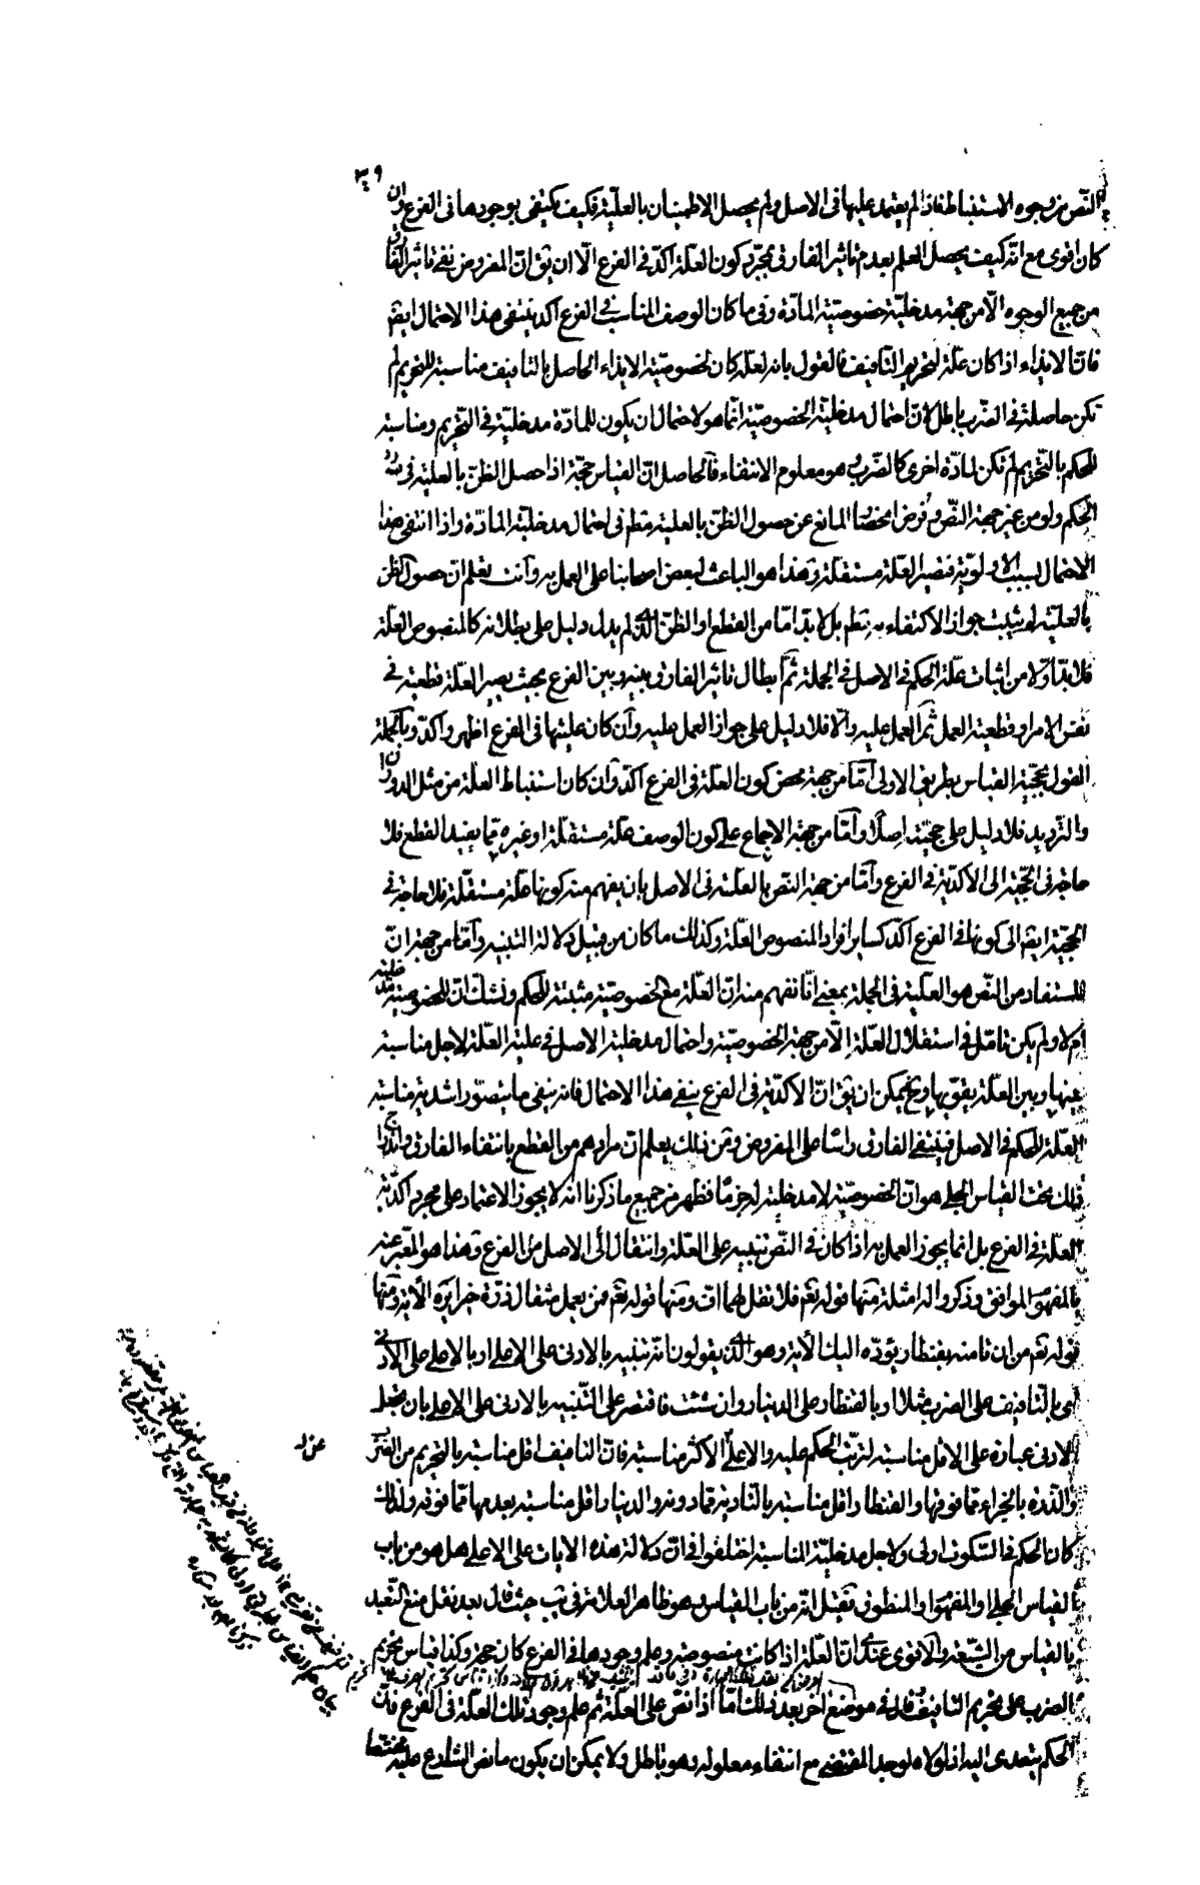 ٣٩
النّص من وجوه الاستنباط فاذا لم يعتمد عليها فى الاصل ولم يحصل الاطمينان بالعليّة فكيف يكتفى بوجودها فى الفرع وان
كان اقوى مع انّه كيف يحصل العلم بعدم تاثير الفارق بمجرّد كون العلّة اكد فى الفرع الّا ان يق انّ المفروض نفى تاثير الفارق
من جميع الوجوه الّا من جهة مدخليّة خصوصيّة المادّة وفى ما كان الوصف المناسب فى الفرع اكد ينتفى هذا الاحتمال ايضم
فانّ الايذاء اذا كان علّة لتحريم التافيف فالقول بانه لعلّه كان لخصوصيّة الايذاء الحاصل بالتافيف مناسبة للتحريم لم
تكن حاصلة فى الضّرب باطل لانّ احتمال مدخليّة الخصوصيّة انّما هو لاحتمال ان يكون للمادّة مدخليّة فى التحريم ومناسبة
للحكم بالتحريم لم تكن لمادّة اخرى كالضّرب وهو معلوم الانتفاء فالحاصل انّ القياس حجّة اذا حصل الظنّ بالعلية فى
الحكم ولو من غير جهة النصّ وفرض انحصار المانع عن حصول الظنّ بالعلية مطم فى احتمال مدخليّة المادّة واذا انتفى هذا
الاحتمال بسبب الاولويّة فتصير العلّة مستقلّة وهذا هو الباعث لبعض اصحابنا على العمل به وانت تعلم ان حصول الظن
بالعليّة لم يثبت جواز الاكتفاء به مطم بل لا بدّ امّا من القطع او الظنّ الّذى لم يدل دليل على بطلانه كالمنصوص العلّة
فلا بدّ اوّلا من اثبات علّة الحكم فى الاصل فى الجملة ثمّ ابطال تاثير الفارق بينه وبين الفرع بحيث يصير العلّة قطعية فى
نفس الامر او قطعية العمل ثمّ العمل عليه والّا فلا دليل على جواز العمل عليه وان كان عليتها فى الفرع اظهر واكد وبالجملة
القول بحجيّة القياس بطريق الاولى امّا من جهة محض كون العلّة فى الفرع اكد وان كان استنباط العلّة من مثل الدوران
والترديد فلا دليل على حجيّته اصلا وامّا من جهة الاجماع على كون الوصف علّة مستقلّة او غيره ممّا يفيد القطع فلا
حاجة فى الحجّية الى الاكدّية فى الفرع وامّا من جهة النصّ بالعلّية فى الاصل بان يفهم منه كونها علّة مستقلّة فلا حاجة فى
الحجيّة ايضم الى كونها فى الفرع اكد كساير افراد المنصوص العلّة وكذلك ما كان من قبيل دلالة التنبيه وامّا من جهة انّ
المستفاد من النّص هو العليّة فى الجملة بمعنى انّا نفهم منه انّ العلّة مع الخصوصيّة مثبتة للحكم ونشكّ انّ للخصوصيّة مدخليّة
ام لا ولم يكن تامّل فى استقلال العلّة الّا من جهة الخصوصيّة واحتمال مدخليّة الاصل فى علية العلّة لاجل مناسبة
بينها وبين العلّة يقوّيها وح يمكن ان يق انّ الاكدّية فى الفرع ينفى هذا الاحتمال فانه ينفى ما يتصوّر اشدية مناسبة
العلّة للحكم فى الاصل فينتفى الفارق راسا على المفروض ومن ذلك يعلم ان مرادهم من القطع بانتفاء الفارق واندراج
ذلك تحت القياس الجلى هو انّ الخصوصيّة لا مدخلية لها جزما فظهر من جميع ما ذكرنا انه لا يجوز الاعتماد على مجرد اكدّية
العلّة فى الفرع بل انما يجوز العمل به اذا كان فى النّص تنبيه على العلّة وانتقال الى الاصل من الفرع وهذا هو المعّبر عنه
بالمفهوم الموافق وذكروا له امثلة منها قوله تعم فلا تقل لهما اف ومنها قوله تعم فمن يعمل مثقال ذرّة خيرا يره الآية ومنها
قوله تعم من ان تامنه بقنطار يؤدّه اليك الآية وهو الّذى يقولون انّه تنبيه بالادنى على الاعلى او بالاعلى على الادنى
اى بالتافيف على الضرب مثلا او بالقنطار على الدينار وان شئت فاقتصر على التّنبيه بالادنى على الاعلى بان تجعل
الادنى عبارة على الاقل مناسبة لترتّب الحكم عليه والاعلى الاكثر مناسبة فانّ التافيف اقل مناسبة بالتحريم من الضّرب
والذرّة بالجزاء ممّا فوقها والقنطار اقل مناسبة بالتادية ممّا دونه والدينار اقل مناسبة بعدمها ممّا فوقه ولذلك
كان الحكم فى المسكوت اولى ولاجل مدخليّة المناسبة اختلفوا فى انّ دلالة هذه الايات على الاعلى هل هو من باب
القياس الجلى او المفهوم او المنطوق فقيل انّه من باب القياس وهو ظاهر العلامة فى يب حيث قال بعد نقل منع التّعبد
بالقياس من الشيعة والاقوى عندى انّ العلّة اذا كانت منصوصة وعلم وجودها فى الفرع كان حجة وكذا قياس تحريم
الضرب على تحريم التافيف وقال فى موضع اخر بعد ذلك امّا اذا نصّ على العلّة ثم علم وجود تلك العلّة فى الفرع فانّ
الحكم يتعدى اليه اذ لولاه لوجد المقتضى مع انتفاء معلوله وهو باطل ولا يمكن ان يكون ما نصّ الشارع عليه مختصّا